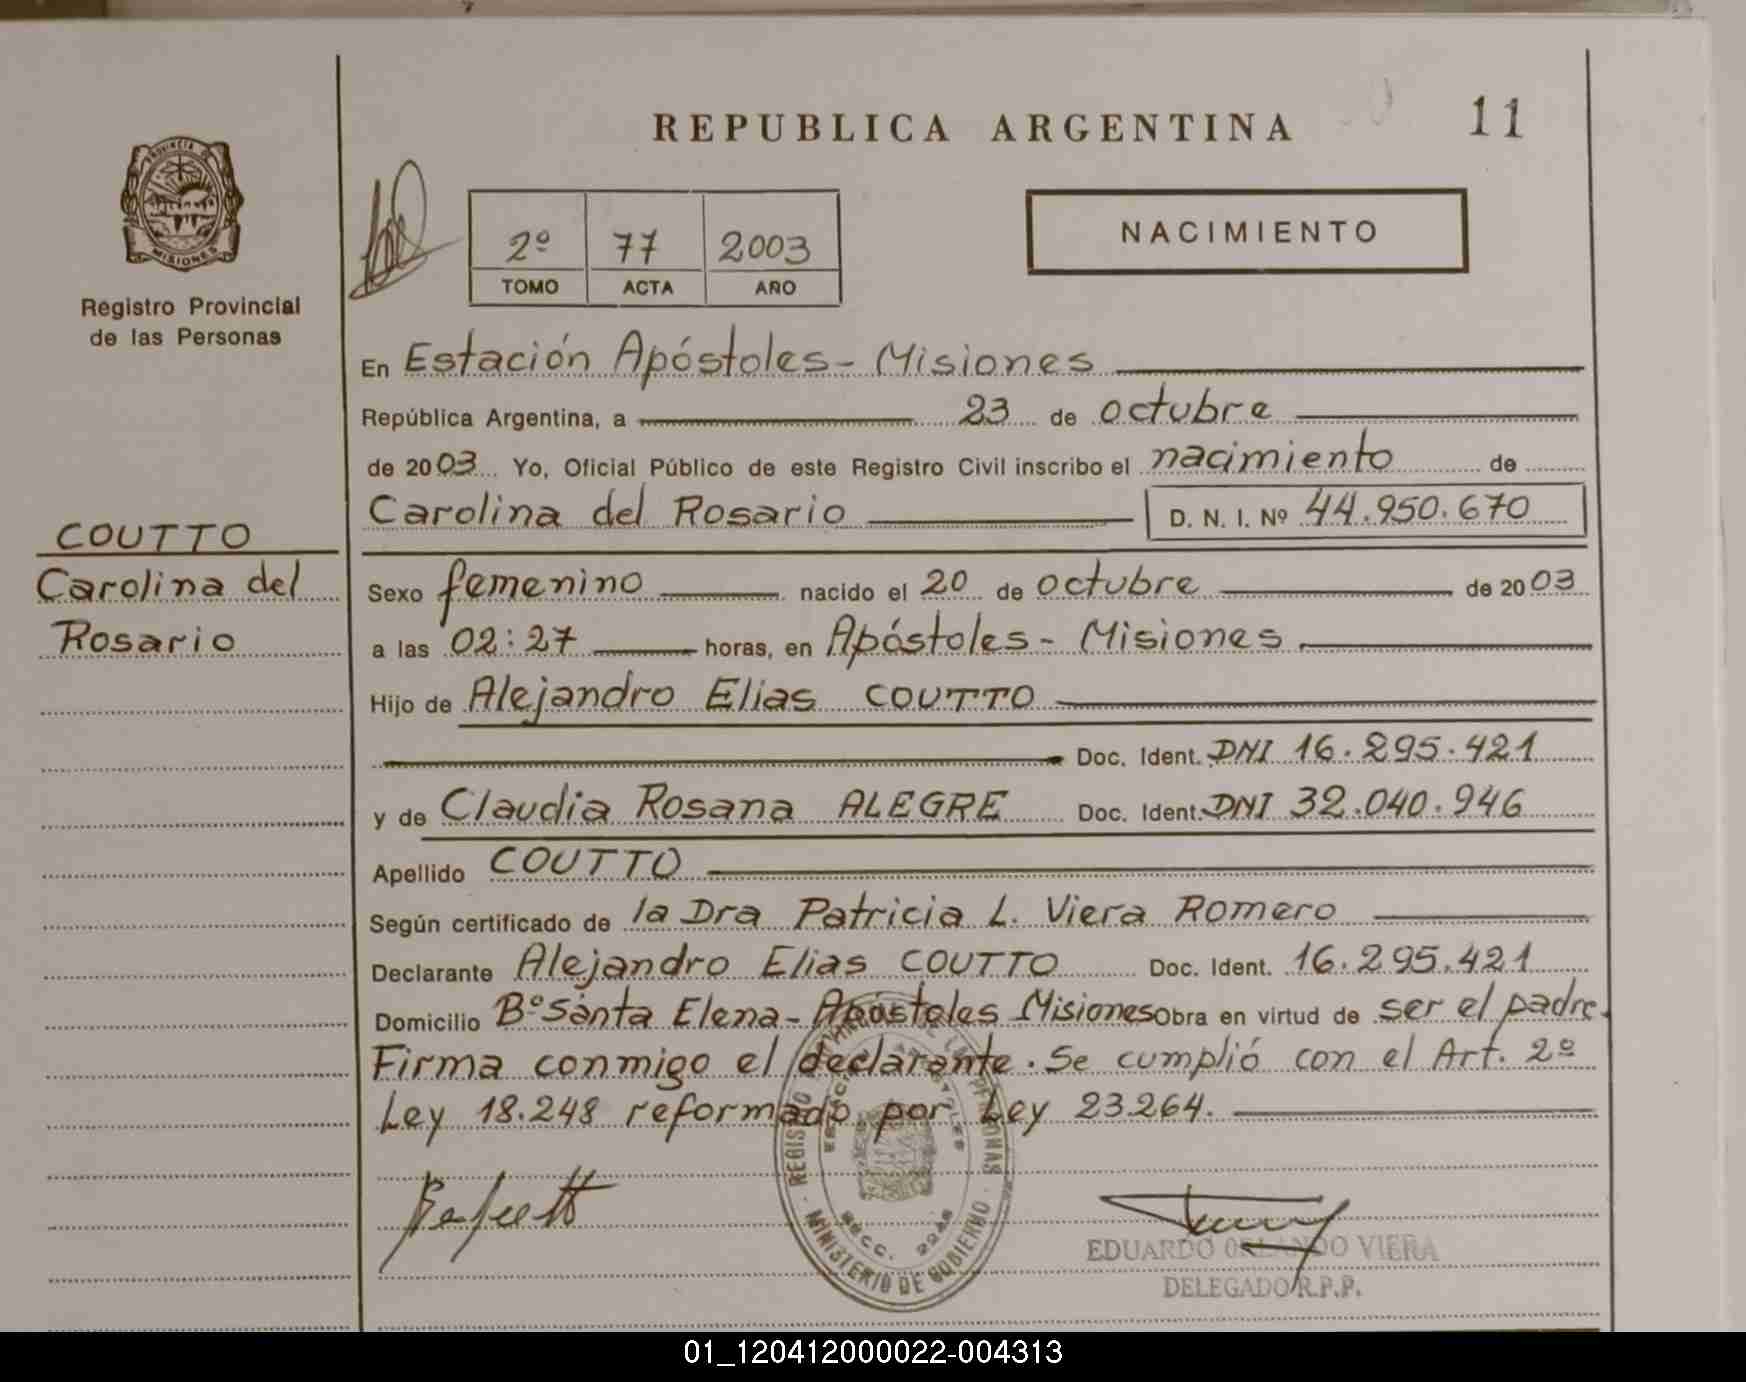 REPUBLICA ARGENTINA
11
PROVINCIA DE
MISIONES
Registro Provincial
de las Personas
2º 77 2003
TOMO ACTA AÑO
NACIMIENTO
En Estación Apóstoles - Misiones
República Argentina, a 23 de octubre
de 2003 Yo, Oficial Público de este Registro Civil inscribo el nacimiento de
Carolina del Rosario D. N. I. Nº 44.950.670
COUTTO
Carolina del
Rosario
Sexo femenino nacido el 20 de octubre de 2003
a las 02:27 horas, en Apóstoles - Misiones
Hijo de Alejandro Elias COUTTO
Doc. Ident. DNI 16.295.421
y de Claudia Rosana ALEGRE Doc. Ident. DNI 32.040.946
Apellido COUTTO
Según certificado de la Dra Patricia L. Viera Romero
Declarante Alejandro Elias COUTTO Doc. Ident. 16.295.421
Domicilio Bº Santa Elena - Apóstoles Misiones Obra en virtud de ser el padre.
Firma conmigo el declarante. Se cumplió con el Art. 2º
Ley 18.248 reformado por Ley 23.264.
MINISTERIO DE GOBIERNO
EDUARDO ORLANDO VIERA
DELEGADO R.P.P.
01_120412000022-004313